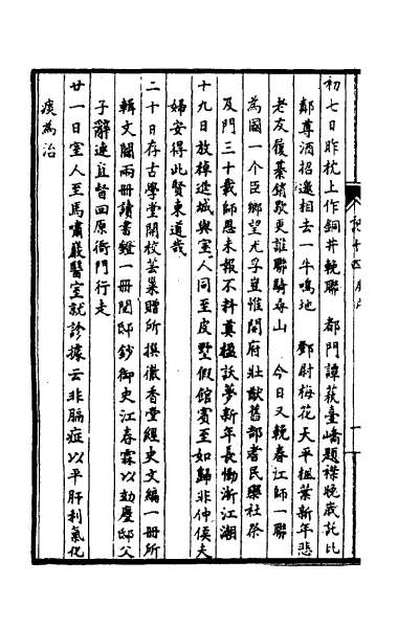 初七日昨枕上作銅井輓聯　都門譚萩臺嶠題襟晚歲託比
鄰尊酒招邀相去一牛鳴地　鄧尉梅花天平楓葉新年悲
老友殘棊銷歇更誰聯騎尋山　今日又輓春江師一聯
為國一个臣鄉望尤孚豈惟開府壯猷舊部耆民興社祭
及門三十載師恩未報不料奠楹訞夢新年長慟浙江潮
十九日放棹遊城與室人同至皮墅假館賓至如歸非仲侯夫
婦安得此賢東道哉
二十日存古學堂開校芸巢贈所撰徽香堂經史文編一冊所
輯文關兩冊讀書鐙一冊閱邸鈔御史江春霖以劾慶邸父
子辭連直督回原衙門行走
廿一日室人至馬嘯巖醫室就診據云非膈症以平肝利氣化
痰為治